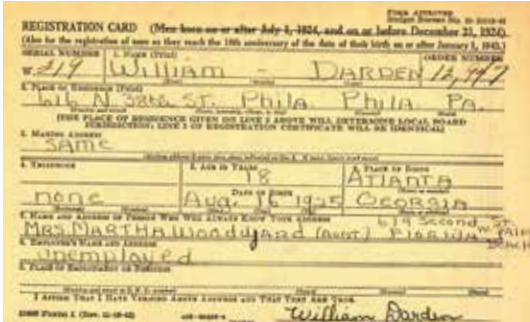 FORM APPROVED
REGISTRATION CARD (Men born on or after July 1, 1924, and on or before December 31, 1924)
(Also for the registration of men as they reach the 18th anniversary of the date of their birth on or after January 1, 1943.)
SERIAL NUMBER 1. NAME (Print) ORDER NUMBER
W 219 William - DARDEN
2. PLACE OF RESIDENCE (Print)
616 N. 38th ST. Phila Phila PA.
[THE PLACE OF RESIDENCE GIVEN ON LINE 2 ABOVE WILL DETERMINE LOCAL BOARD
JURISDICTION; LINE 2 OF REGISTRATION CERTIFICATE WILL BE IDENTICAL]
3. MAILING ADDRESS
SAME
4. TELEPHONE 5. AGE IN YEARS 6. PLACE OF BIRTH
18 ATLANTA
DATE OF BIRTH
none Aug. 16 1925 GEORGIA
7. NAME AND ADDRESS OF PERSON WHO WILL ALWAYS KNOW YOUR ADDRESS 619 Second St.
MRS. MARTHA Woodyard (AUNT) FLORIDA W. PALM BEACH
8. EMPLOYER'S NAME AND ADDRESS
unemployed
9. PLACE OF EMPLOYMENT OR BUSINESS
I AFFIRM THAT I HAVE VERIFIED ABOVE ANSWERS AND THAT THEY ARE TRUE.
William Darden